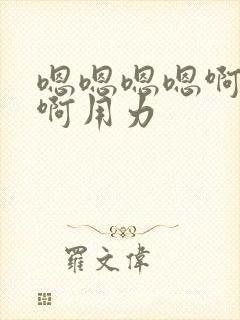 嗯嗯嗯嗯啊
啊用力
羅文偉